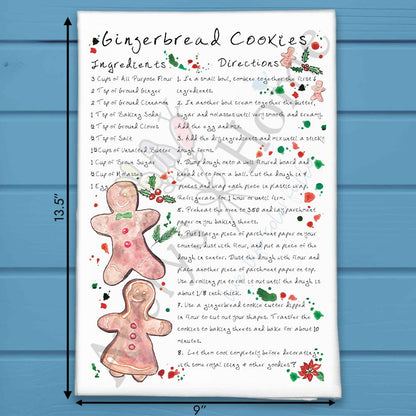 Gingerbread Cookies
Ingredients
3 Cups of All Purpose Flour
2 Tsp of Ground Ginger
2 Tsp of Ground Cinnamon
1 Tsp of Baking Soda
Tsp of Ground Cloves
Tsp of Salt
Cups of Unsalted Butter
Cup of Brown Sugar
Cup of Molasses
1 Egg
Directions
1. In a small bowl, combine together the first 6
ingredients.
2. In another bowl cream together the butter,
sugar and molasses until well smooth and creamy.
Add the egg and mix.
3. Add the dry ingredients and mix until a sticky
dough forms.
4. Dump dough onto a well floured board and
knead it to form a ball. Cut the dough in 4
pieces and wrap each piece in plastic wrap.
Refrigerate for 1 hour or until firm.
5. Preheat the oven to 350 and lay parchment
paper on you baking sheets.
6. Put 1 large piece of parchment paper on your
counter, dust with flour, and put a piece of the
dough in center. Dust the dough with flour and
place another piece of parchment paper on top.
Use a rolling pin to roll it out until the dough is
about 1/8 inch thick.
7. Use a gingerbread cookie cutter dipped
in flour to cut out your shapes. Transfer the
cookies to baking sheets and bake for about 10
minutes.
8. Let them cool completely before decorating
with some royal icing & other goodies!
13.5"
9"